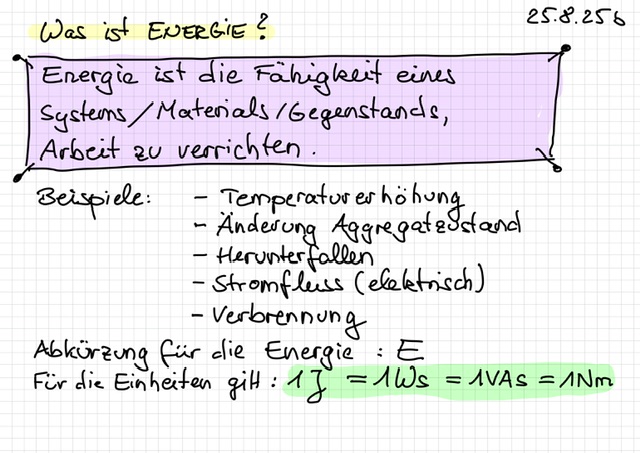 25.8.25 b
Was ist ENERGIE?
Energie ist die Fähigkeit eines
Systems/Materials/Gegenstands,
Arbeit zu verrichten.
Beispiele: - Temperaturerhöhung
- Änderung Aggregatzustand
- Herunterfallen
- Stromfluss (elektrisch)
- Verbrennung
Abkürzung für die Energie : E
Für die Einheiten gilt : 1 J = 1Ws = 1VAs = 1Nm